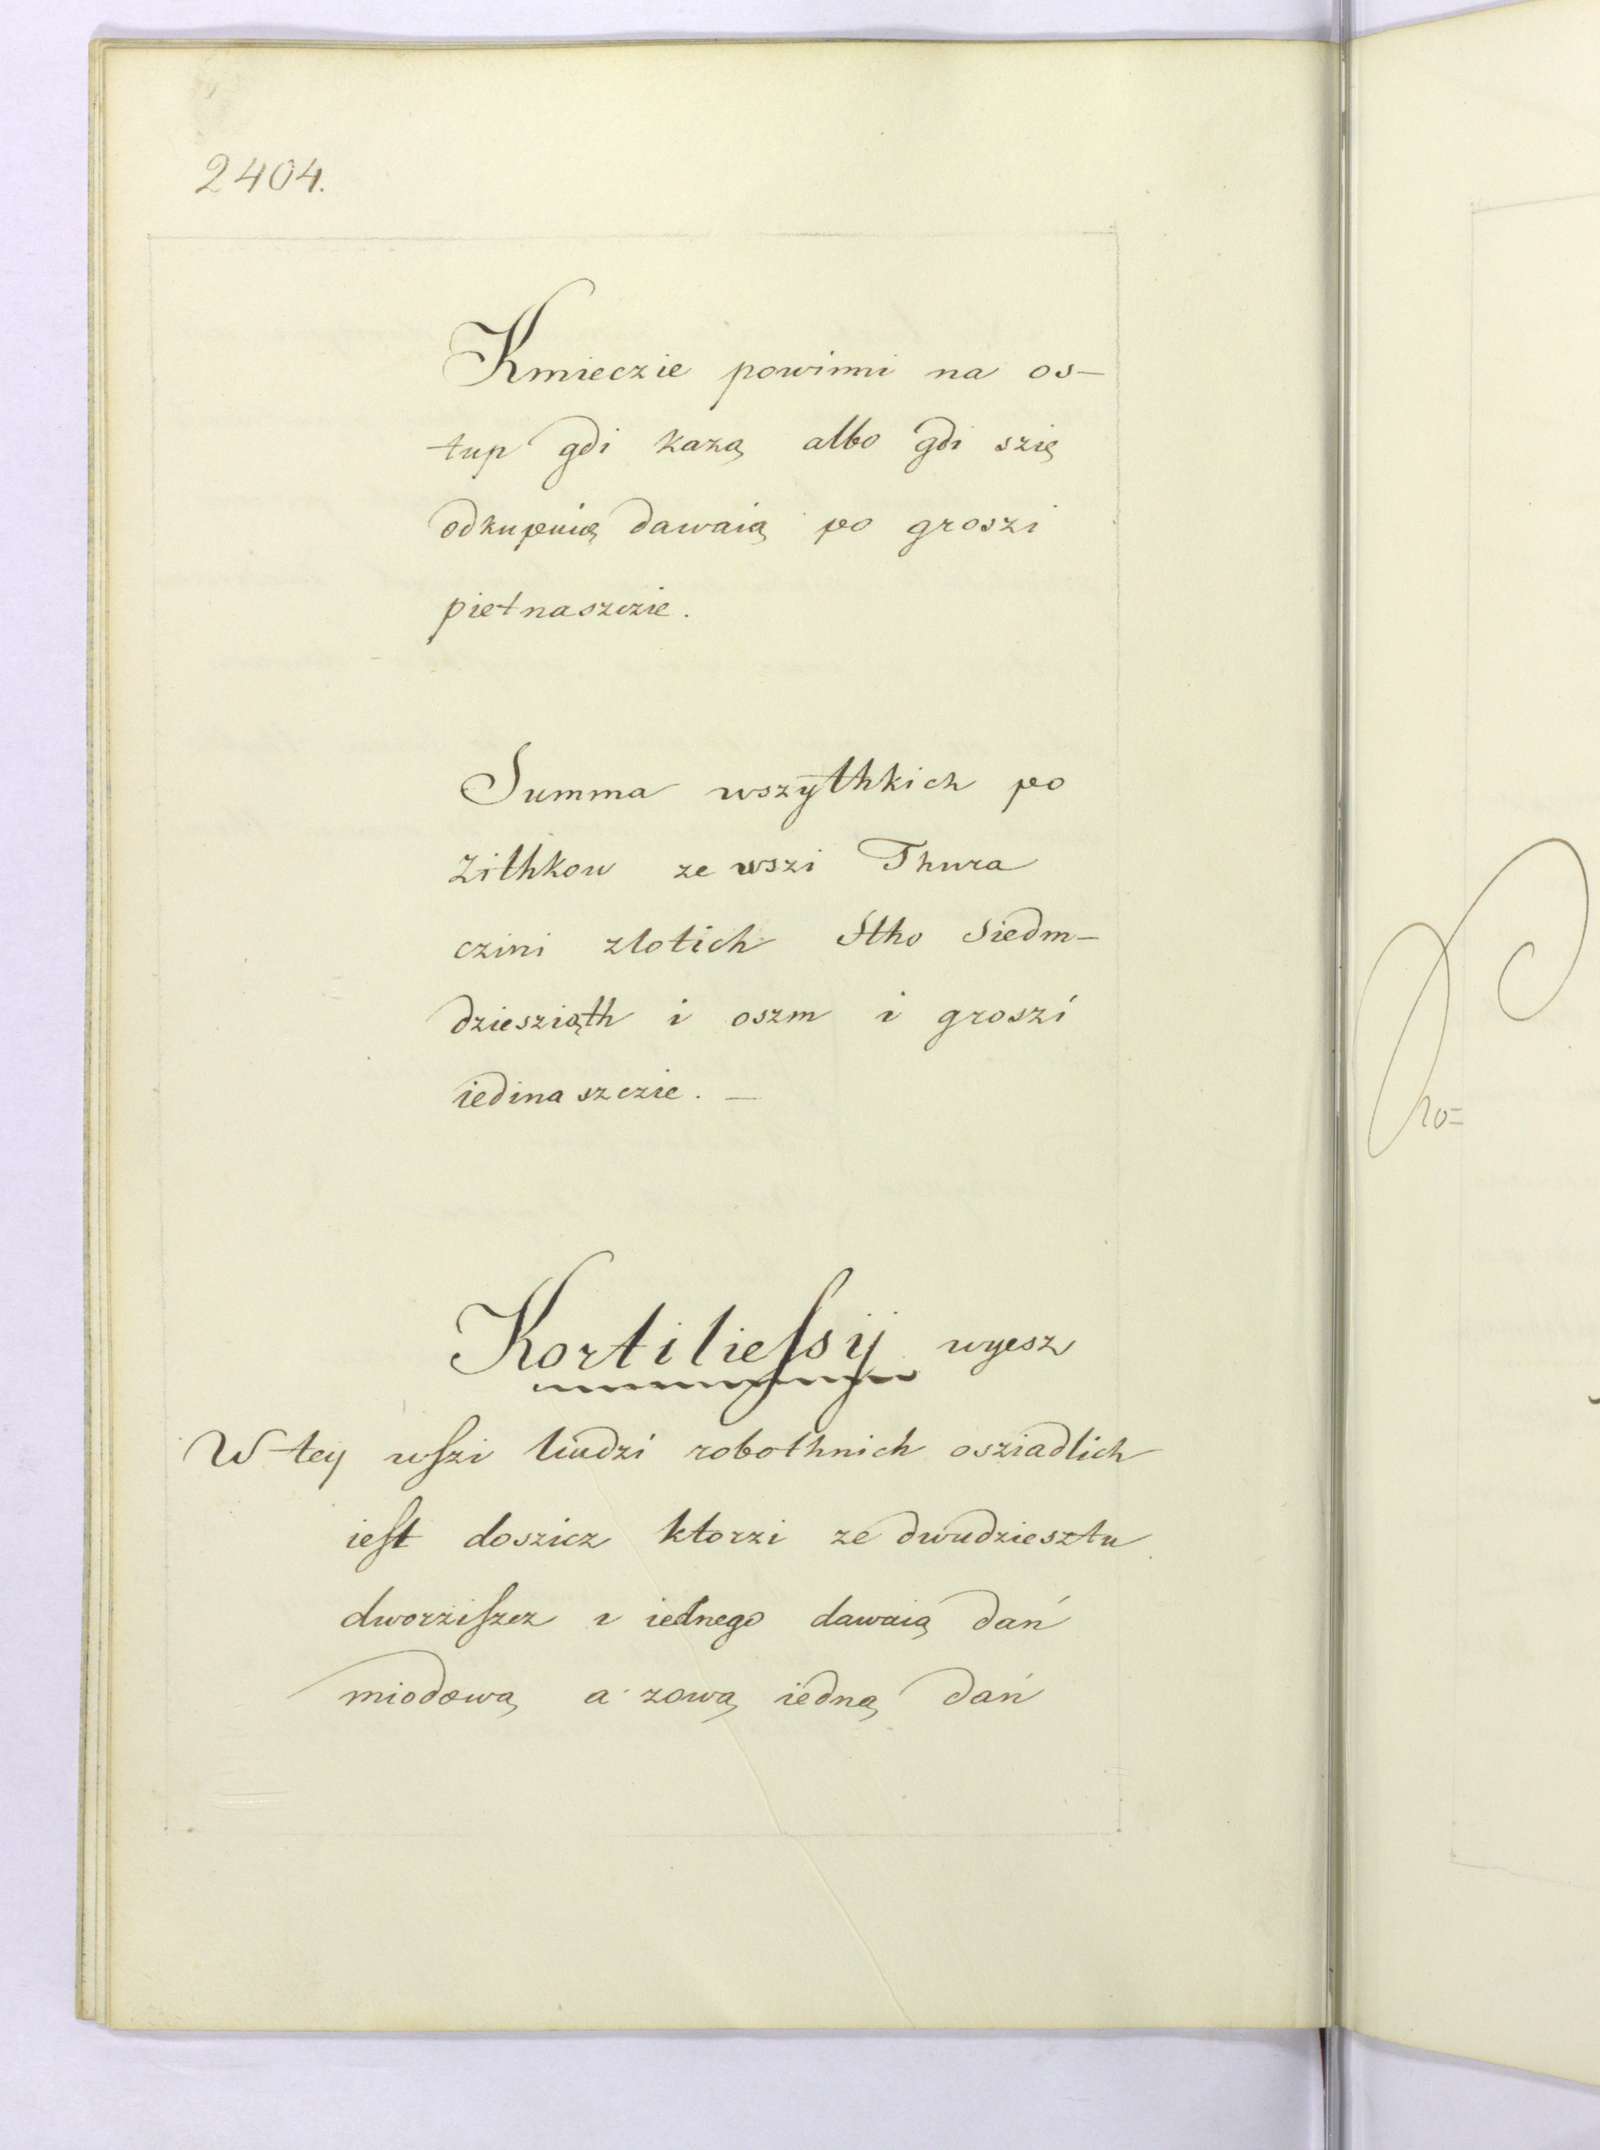 2404.
Kmieczie powinni na os-
tup gdi kazą albo gdi szię
odkupuią dawaią po groszi
pietnaszczie.
Summa wszythkich po
zithkow ze wszi Thura
czini zlotich Stho Siedm-
dziesziąth i oszm i groszi
iedinaszczie. —
Kortilieſsÿ wyesz
W tey wſzi liudzi robothnich osziadlich
ieſt doszicz ktorzi ze dwudziesztu
dworziſzcz i iednego dawaią dań
miodową a zową iedną dań
ro=